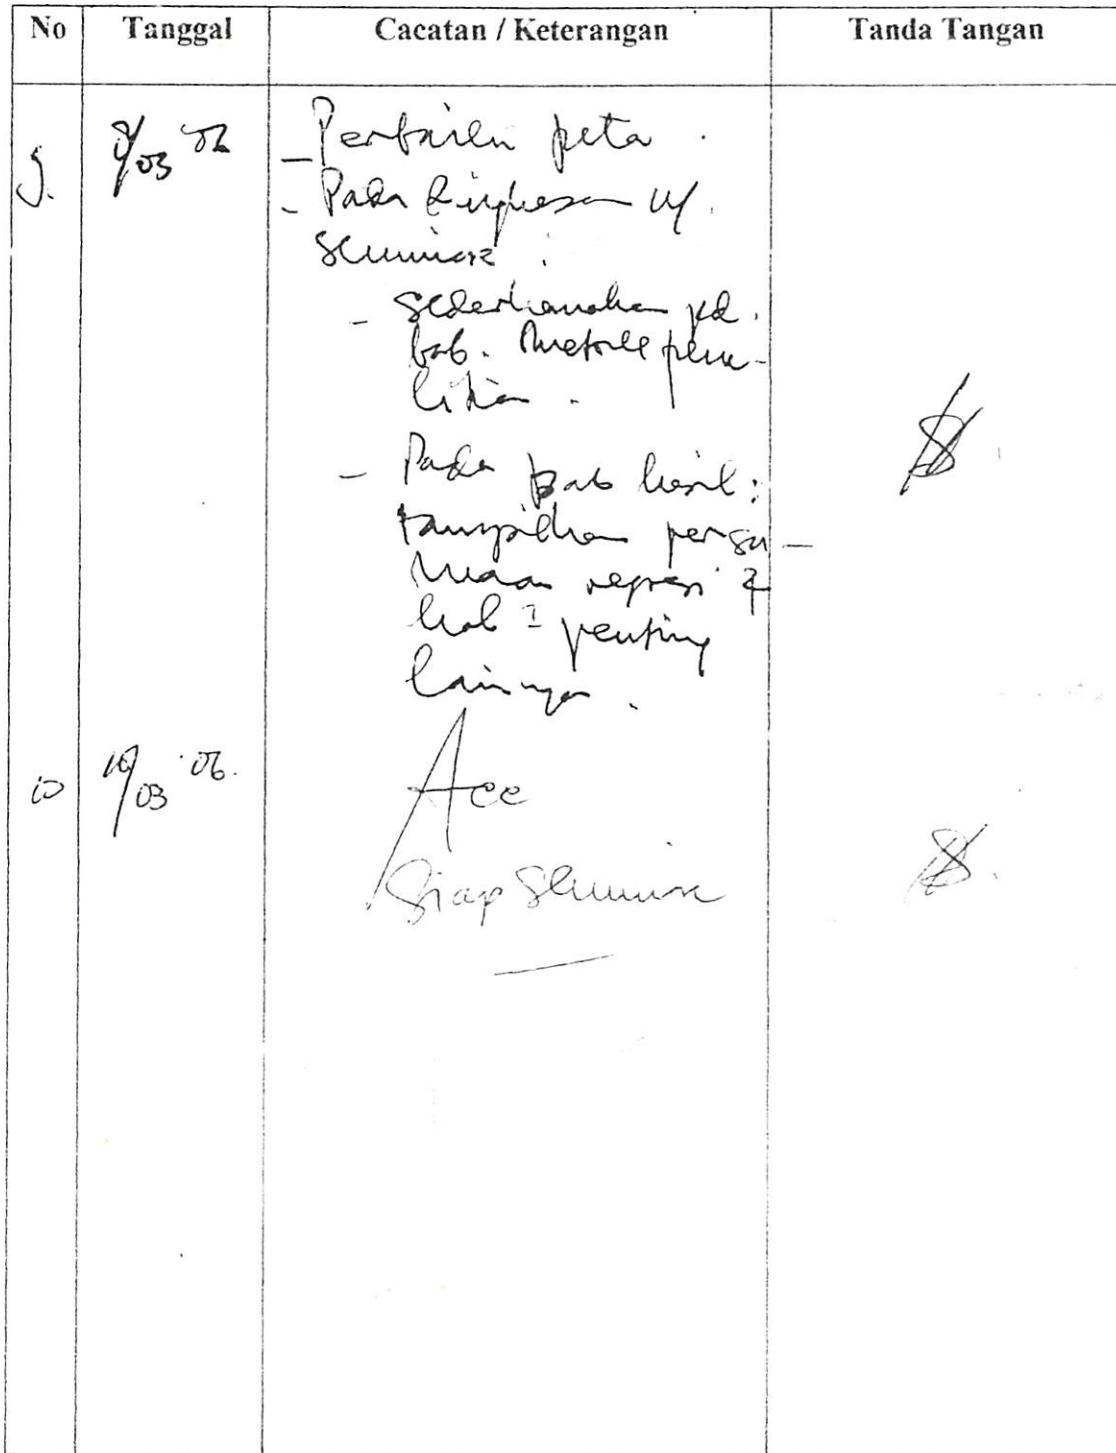 No Tanggal Cacatan / Keterangan Tanda Tangan
9. 8/03 '06 - Perbaiki peta.
- Pada Ringkasan u/.
Seminar :
- Sederhanakan pd.
bab. Metode pene-
litian.
- Pada bab hasil :
tampilkan persa-
maan regresi &
hal 2 penting
lainnya.
10 10/03 '06. Acc
Siap Seminar